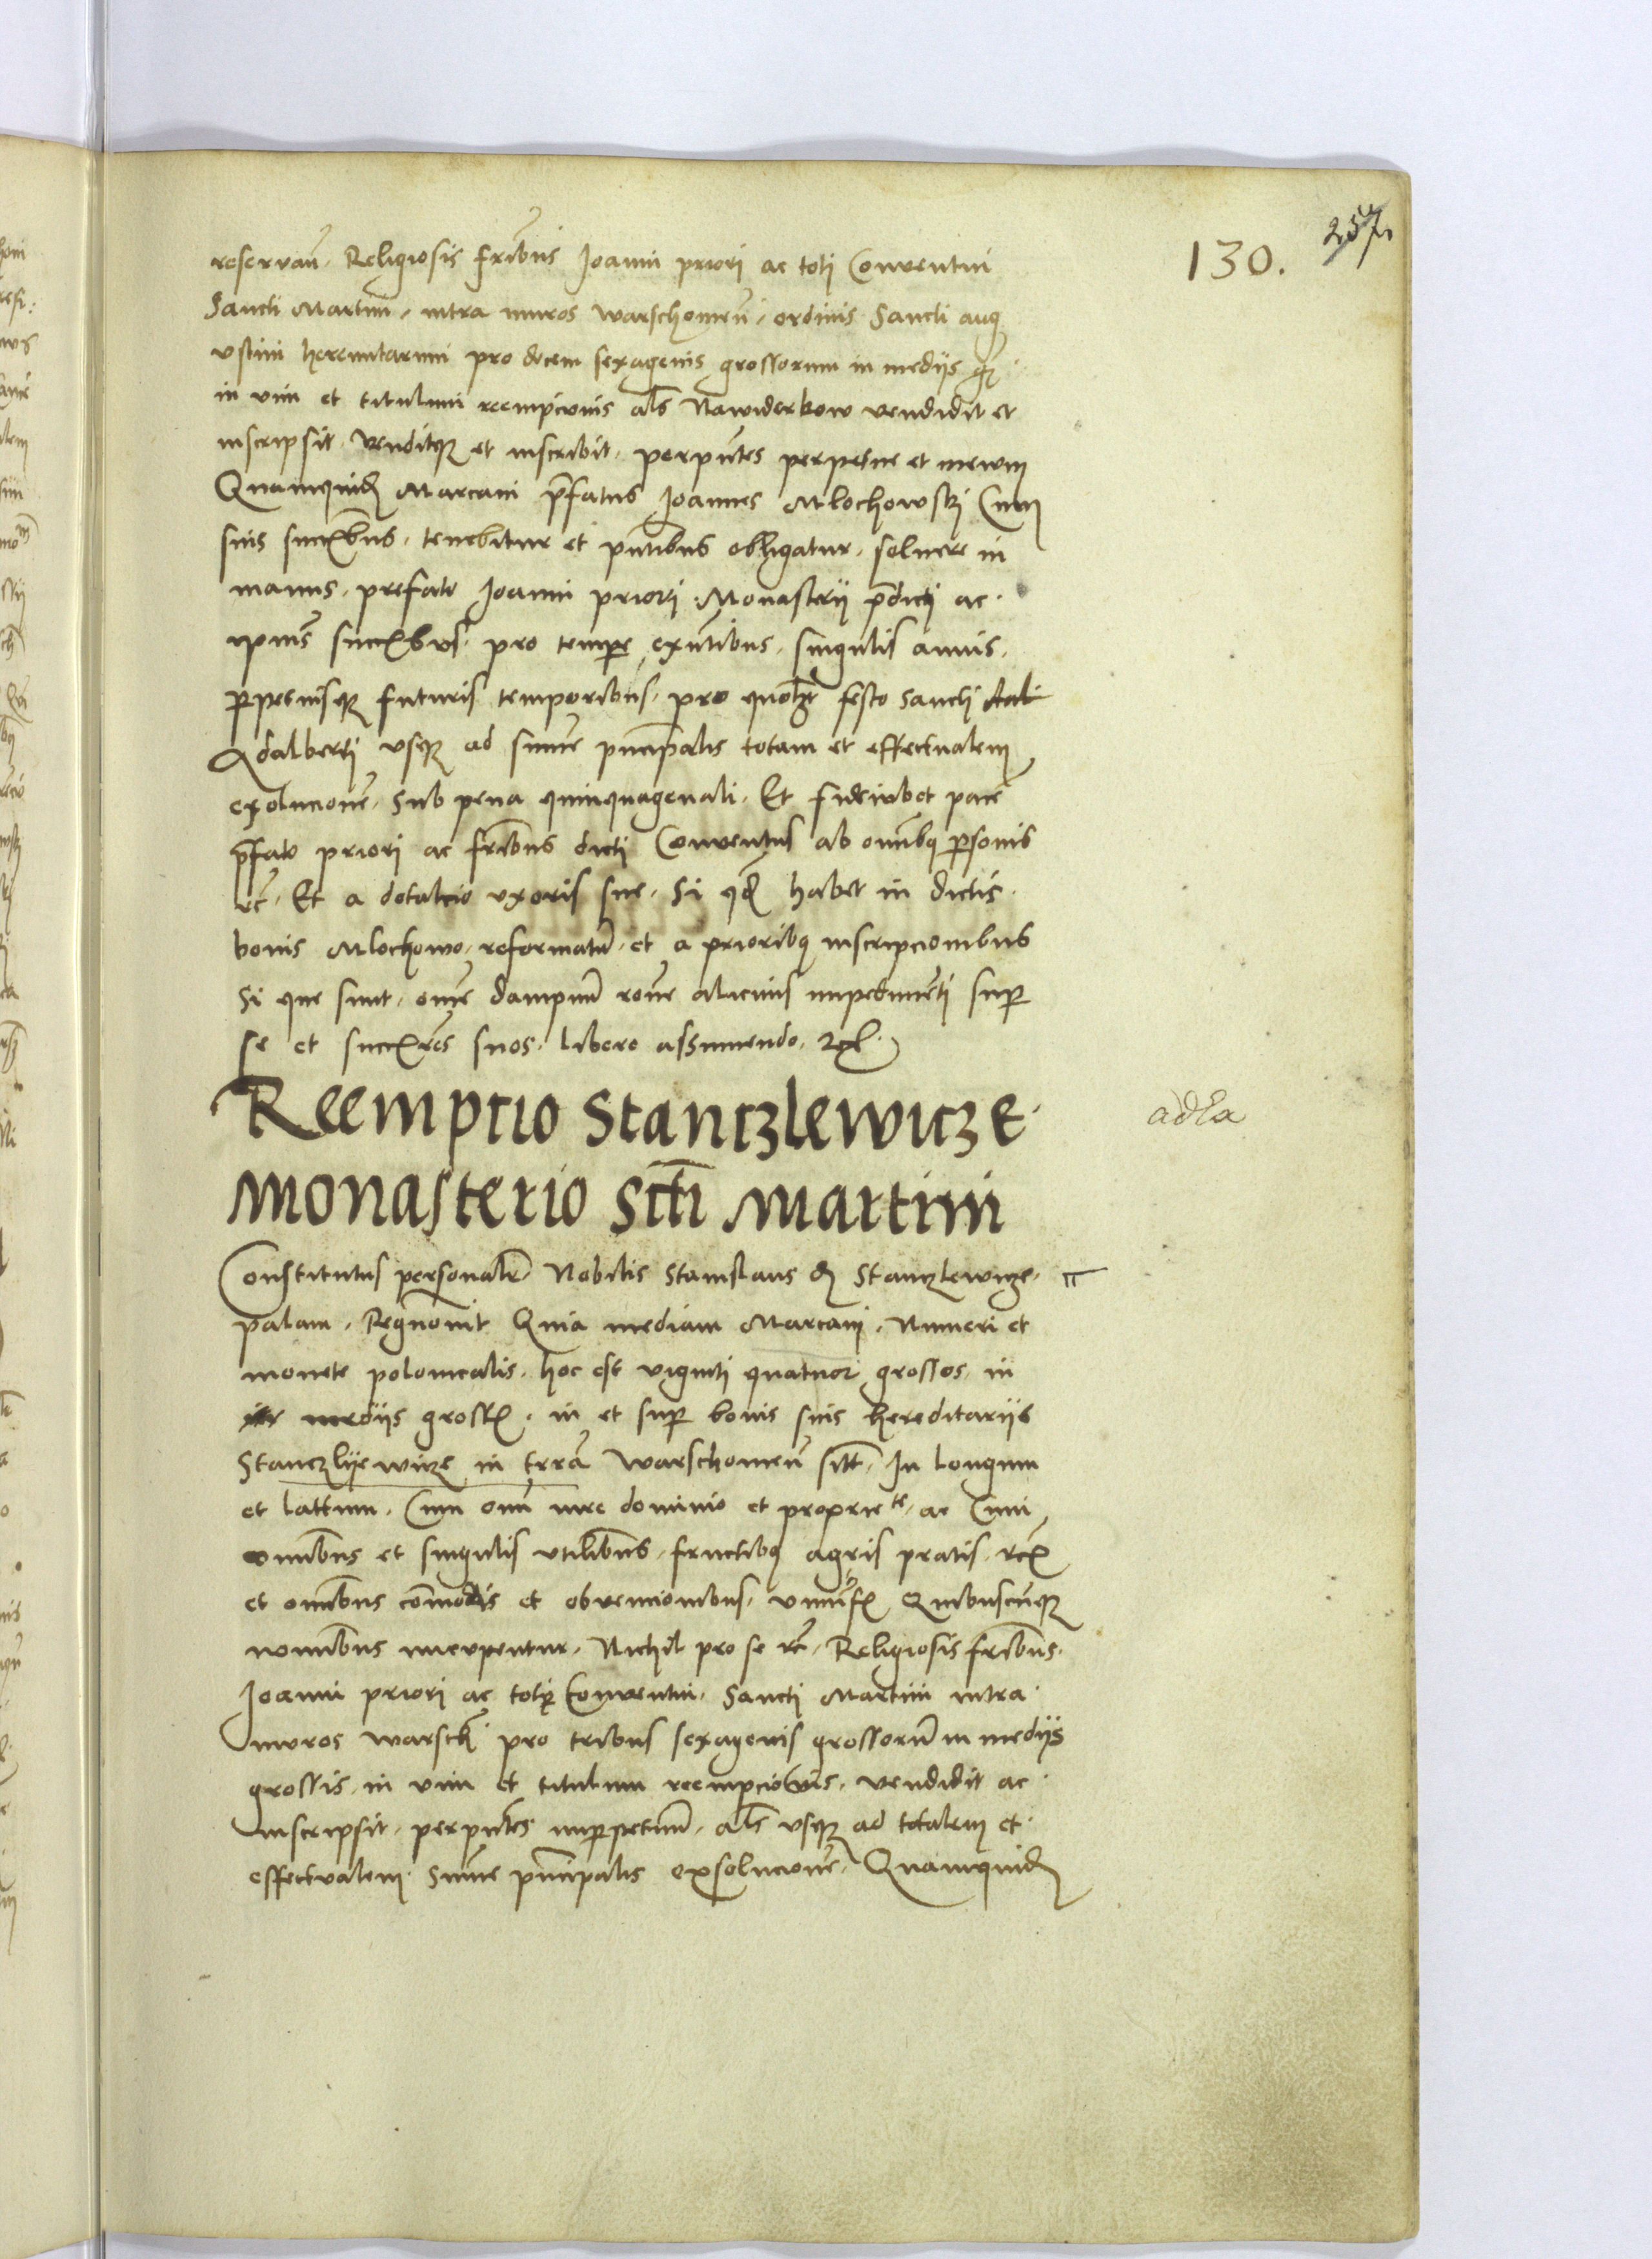 257
130.
reservan̄. Religiosis fr̄ibus Joanni priori ac toti Conventui
Sancti Martini, intra muros warschouien̄, ordinis Sancti aug
ustini heremitarum pro decem sexagenis grossorum in medijs
in vim et titulum reempcionis al̄s Nawiderkow vendidit et
inscripsit. venditque et inscribit. per pn̄tes perpetue et in ewm
Quamquidem Marcam p̄fatus Joannes Mlochowskj Cum
suis succ̄bus. tenebitur et pn̄tibus obligatur. soluere in
manus. prefato Joanni priori Monasterij p̄dicti ac.
ipius succ̄bus. pro tempore exn̄tibus. singulis annis.
perpetuisque futuris temporibus. pro quolibet festo Sancti
Adalberti usque ad sum̄e pn̄cipalis totam et effectualem
exolucionē. Sub pena quinquagenali. Et fideiubet pacē
p̄fato priori ac fr̄ibus dicti Conventus ab omībus personis
etc̄. Et a dotalicio uxoris sue. Si quod habet in dictis.
bonis Mlochowo reformatū. et a prioribus inscripcionibus
Si que sunt. om̄e dampnū rōne alicuius impedimēti super
se et succ̄res suos. libere assumendo.
Reempcio Stanczlewicze.
adła
monasterio Sctī Martini
Constitutus personalr̄ Nobilis Stanislaus de Stanczlewicze.
palam. Recognouit Quia mediam Marcam. Numeri et
monete polonicalis. hoc est viginti quatuor grossos. in
medijs gross. in et super bonis suis hereditarijs
Stanczlyewicze in terra Warschouien̄ sitt. In longum
et lattum. Cum omī iure dominio et proprietᵗᵉ. ac Cum
omībus et singulis utilibus. fructibus agris pratis. etc
et omībus cōmodis et obvencionibus. Quibuscūque
nomībus nucupentur. Nichil pro se etc̄. Religiosis fr̄ibus.
Joanni priori ac toti Conventui. Sancti Martini intra.
muros warsch pro tribus sexagenis grossorū in medijs
grossis. in vim et titulum reempcionis. vendidit ac.
inscripsit. per pn̄tes imperpetuū. al̄s usque ad totalem et.
effectualem. Sum̄e pn̄cipalis exsolucionē. Quamquidem